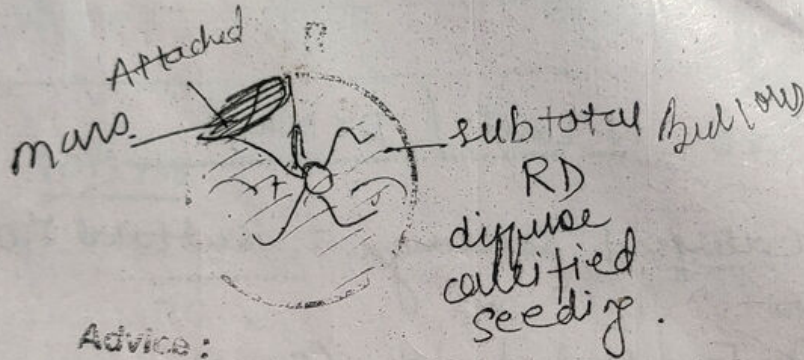 Attached
mass.
subtotal Bullous
RD
diffuse
calcified
seeding.
Advice: